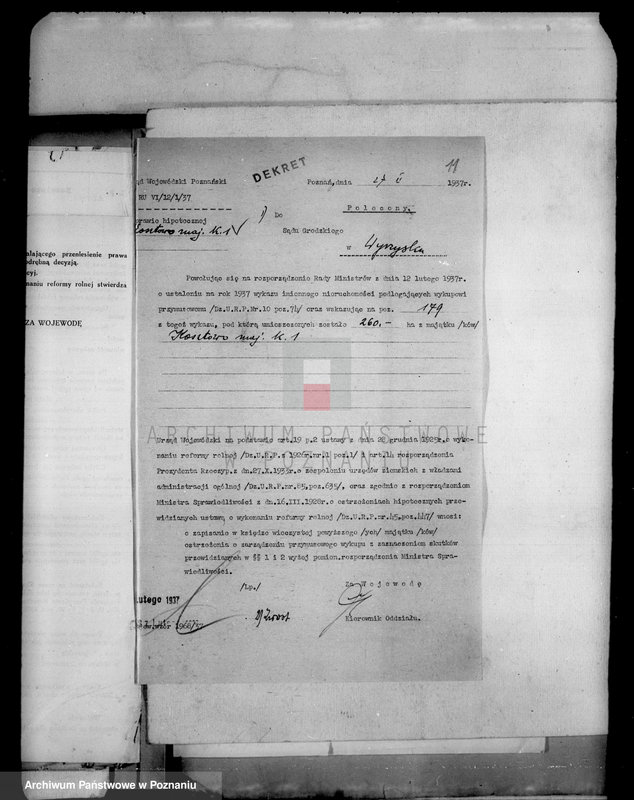 11
DEKRET
Wojewódzki Poznański
Poznań,dnia 27 II 1937r.
RU VI/12/1/37
hipotecznej
1) Do
Polecony.
maj. K.1
Sądu Grodzkiego
w Wyrzysku
ającego przeniesienie prawa
odrębną decyzją.
cyj.
naniu reformy rolnej stwierdza
ZA WOJEWODĘ
Powołując się na rozporządzenie Rady Ministrów z dnia 12 lutego 1937r.
o ustaleniu na rok 1937 wykazu imiennego nieruchomości podlegających wykupowi
przymusowemu /Dz.U.R.P.Nr.10 poz.74/ oraz wskazując na poz. 179
z tegoż wykazu, pod którą umieszczonych zostało 260,- ha z majątku /ków/
Kosztowo maj. K. 1
ARCHIWUM PAŃSTWOWE
W POZNANIU
Urząd Wojewódzki na podstawie art.19 p.2 ustawy z dnia 28 grudnia 1925r.o wyko-
naniu reformy rolnej /Dz.U.R.P.z 1926r.nr.1 poz.1/ i art.14 rozporządzenia
Prezydenta Rzeczyp.z dn.27.X.1933r.o zespoleniu urzędów ziemskich z władzami
administracji ogólnej /Dz.U.R.P.nr.85,poz.635/, oraz zgodnie z rozporządzeniem
Ministra Sprawiedliwości z dn.16.III.1928r.o ostrzeżeniach hipotecznych prze-
widzianych ustawą o wykonaniu reformy rolnej /Dz.U.R.P.nr.45,poz.447/ wnosi:
o zapisanie w księdze wieczystej powyższego /ych/ majątku /ków/
ostrzeżenia o zarządzeniu przymusowego wykupu z zaznaczeniem skutków
przewidzianych w §§ 1 i 2 wyżej pomien.rozporządzenia Ministra Spra-
wiedliwości.
Za Wojewodę
lutego 1937
2) Zwrot
Kierownik Oddziału.
Archiwum Państwowe w Poznaniu